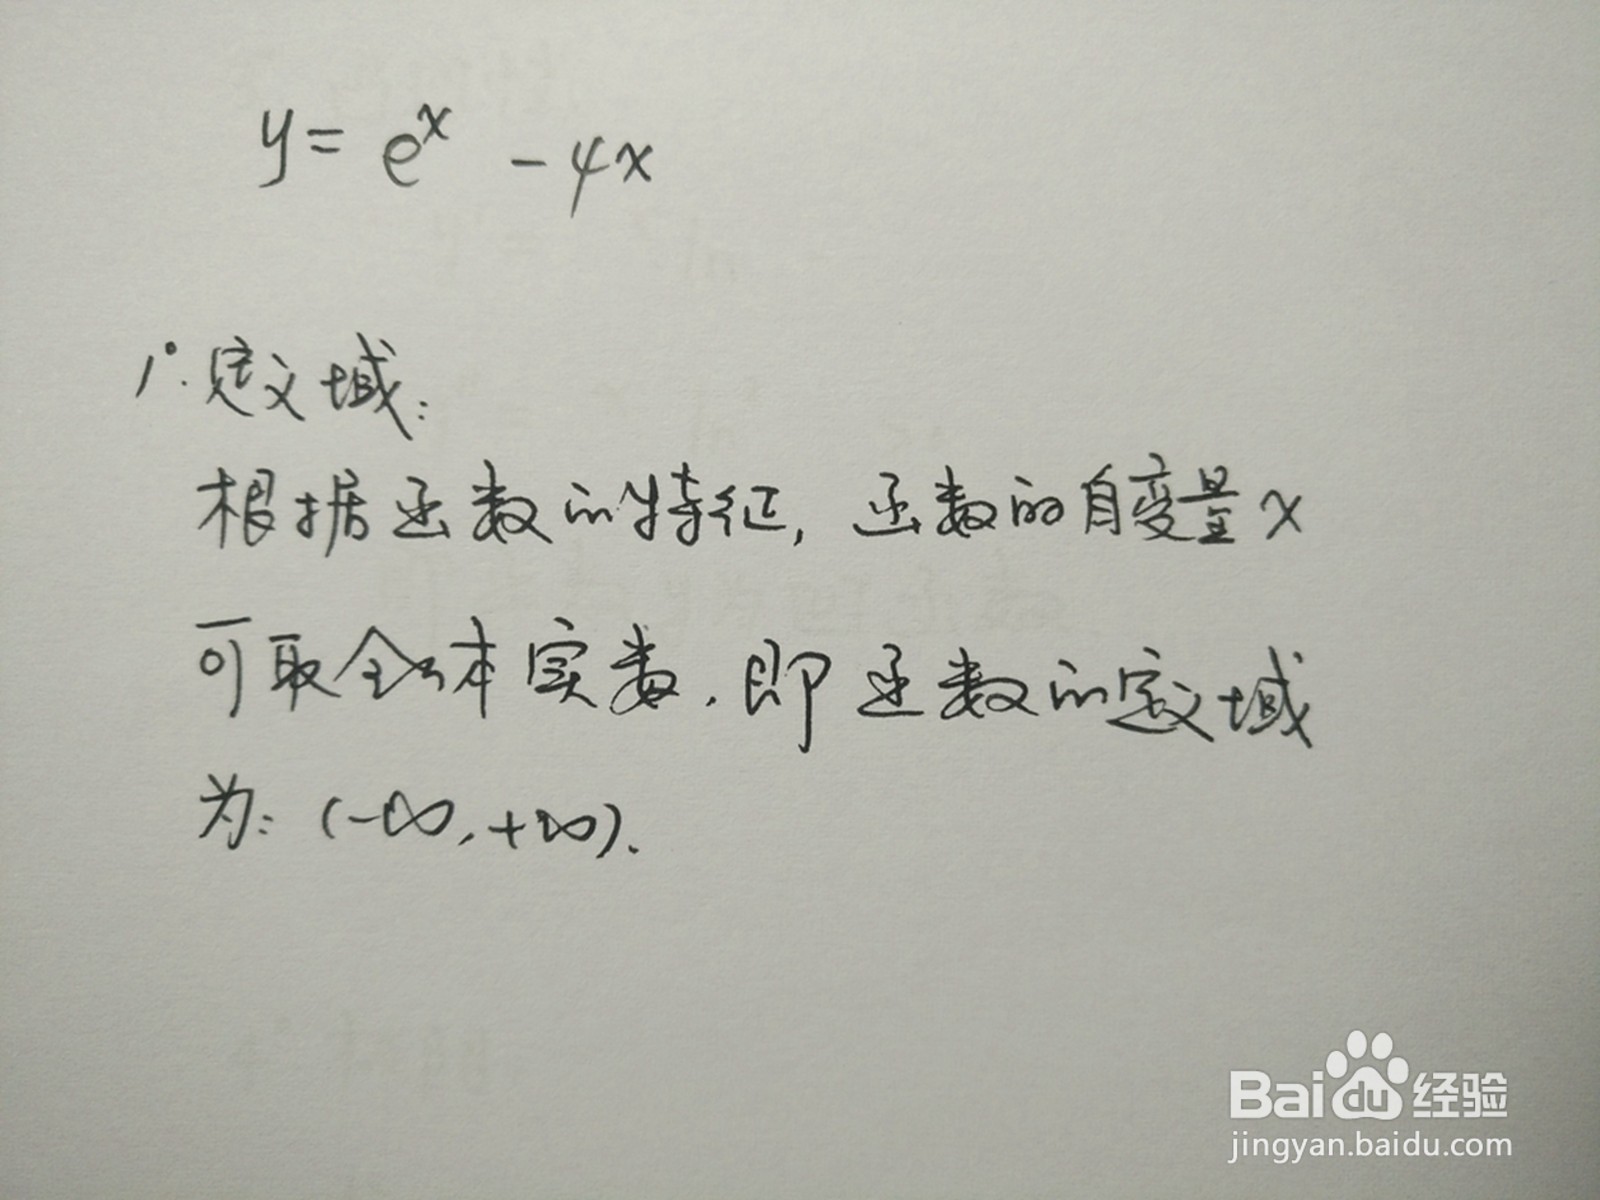 y = e^x - 4x
1°. 定义域:
根据函数的特征, 函数的自变量x
可取全体实数, 即函数的定义域
为: (-∞, +∞).
Baidu经验
jingyan.baidu.com